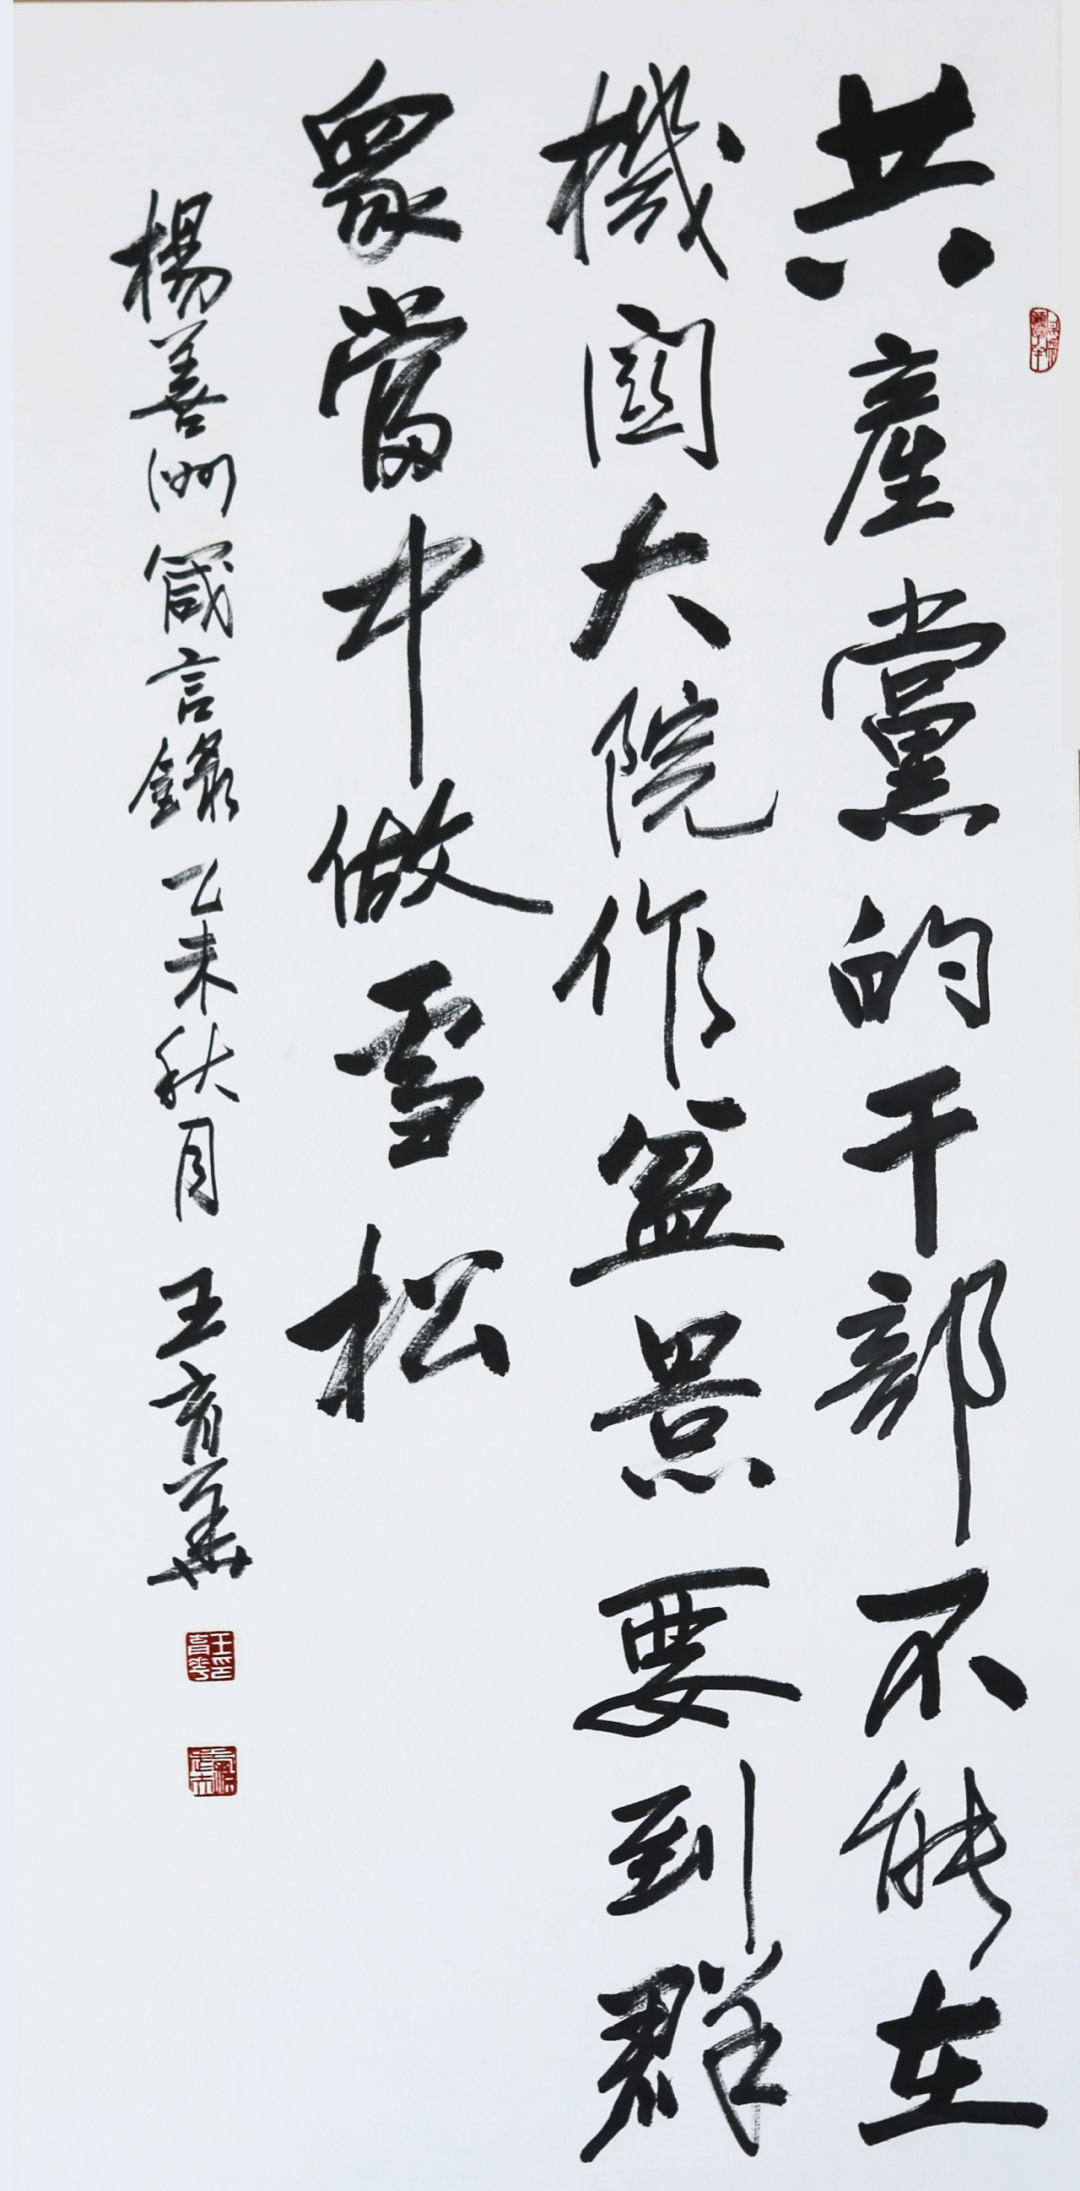 共產黨的干部不能在
機関大院作盆景要到群
眾當中做雪松
楊善洲箴言錄乙未秋月王育華
王育華印